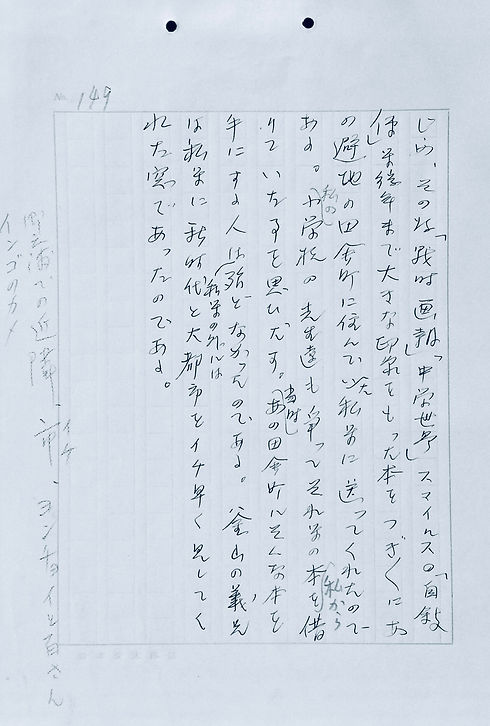 149
じめ、その好「戦時画報」「中学世界」スマイルスの「自叙
傳」等後年まで大きな印象をもった本をつぎつぎにあ
の避地の田舎町に住んでいた私等に送ってくれたので
ある。私の小学校の先生達も争ってそれ等の本を私から借
りていた事を思ひだす。当時しあの田舎町にそんな本を
手にする人は私等の外には殆どなかったのである。釜山の義兄
は私等に新時代と大都市をイチ早く見してく
れた窓であったのである。
での近隣、イチ、ヨンチョイと百さん
インゴのカメ